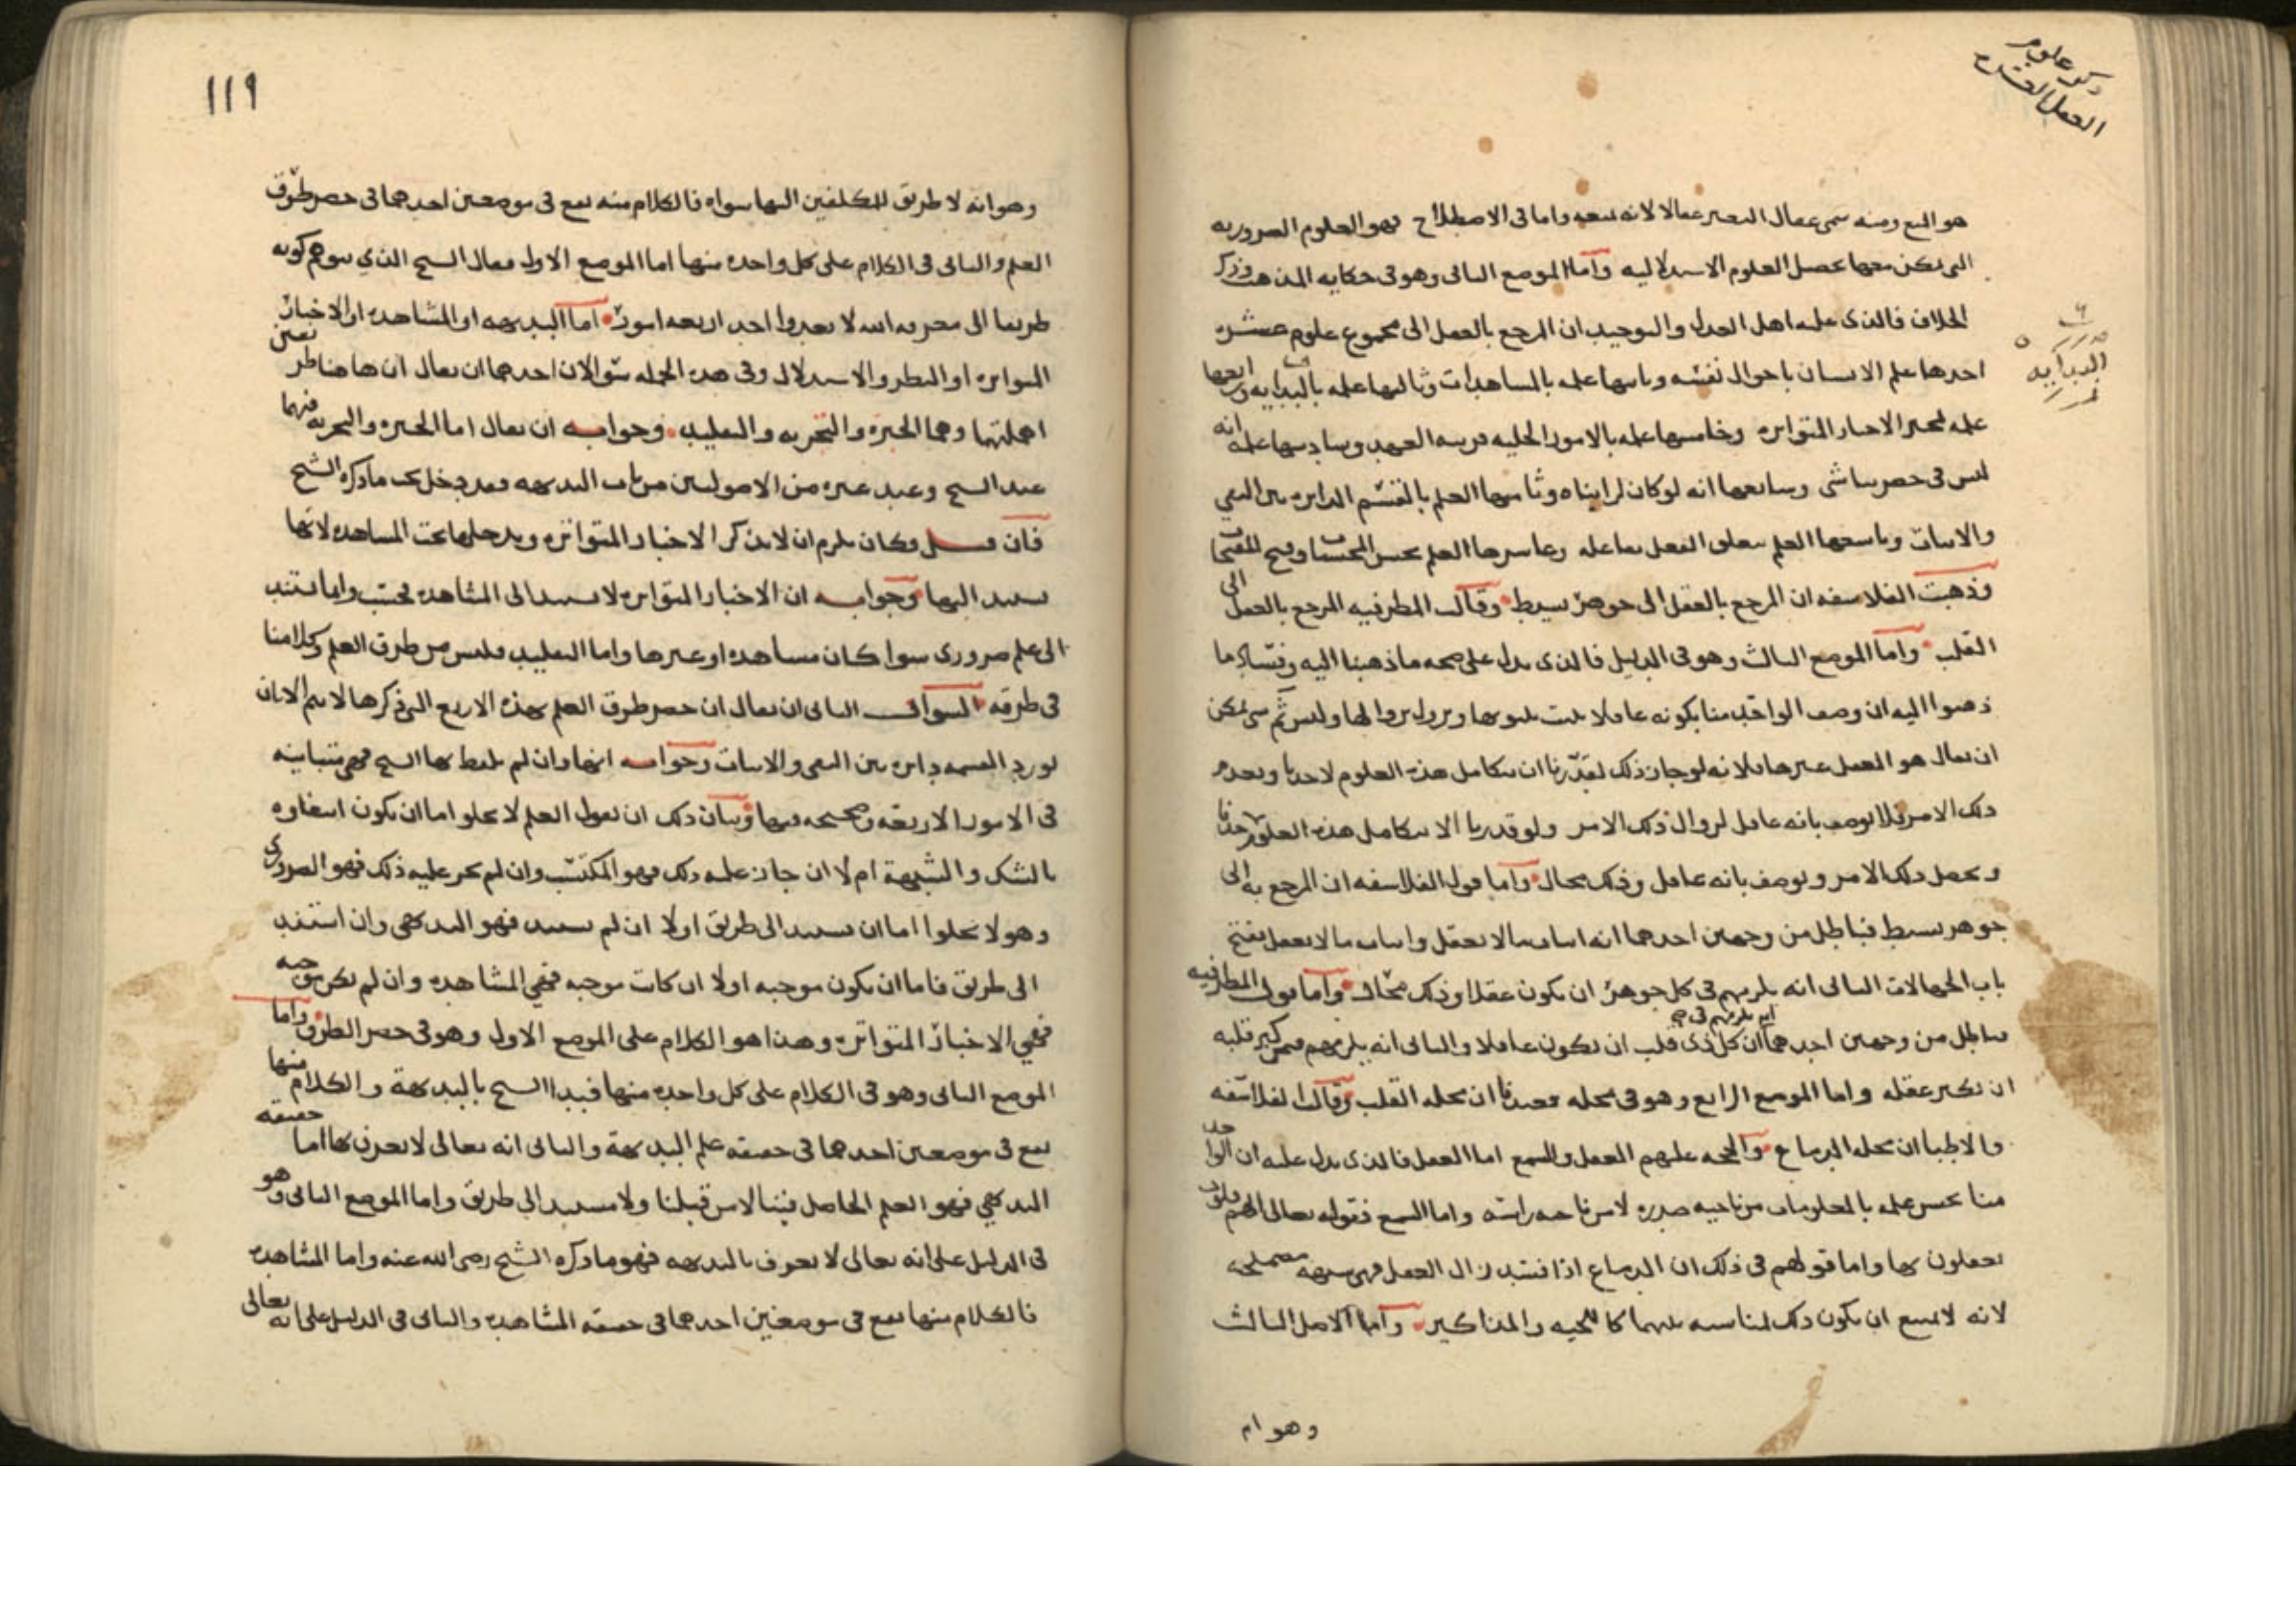 ذكر علوم
العقل العشره
هو المنع ومنه سمى عقال البعير عقالا لانه يمنعه واما فى الاصطلاح فهو العلوم الضروريه
التى يمكن معها تحصيل العلوم الاستدلاليه واما الموضع الثانى وهو فى حكايه المذهب وذكر
الخلاف فالذى عليه اهل العدل والتوحيد ان المرجع بالعقل الى مجموع علوم عشره
احدها علم الانسان باحوال نفسه وثانيها علمه بالمشاهدات وثالثها علمه بالبدايه ورابعها
البدايه
علمه بمخبر الاخبار المتواتره وخامسها علمه بالامور الجليه قريبه العهد وسادسها علمه انه
ليس فى حضرتنا شى وسابعها انه لو كان لرايناه وثامنها العلم بالقسم الدايره بين النفي
والاثبات وتاسعها العلم بتعلق الفعل بفاعله وعاشرها العلم بحسن المحسنات وقبح المقبحات
وذهبت الفلاسفه ان المرجع بالعقل الى جوهر بسيط وقالت المطرفيه المرجع بالعقل الى
القلب واما الموضع الثالث وهو فى الدليل فالذى يدل على صحه ما ذهبنا اليه وفساد ما
ذهبوا اليه ان وصف الواحد منا بكونه عاقلا يثبت بثبوتها ويزول بزوالها وليس ثم شى يمكن
ان يقال هو العقل غيرها ولانه لو جاز ذلك لقدرنا ان يتكامل هذه العلوم لاحدنا ويعدم
ذلك الامر فلا يوصف بانه عاقل لزوال ذلك الامر ولو قدرنا الا يتكامل هذه العلوم لاحدنا
ويحصل ذلك الامر ويوصف بانه عاقل وذلك محال واما قول الفلاسفه ان المرجع به الى
جوهر بسيط فباطل من وجهين احدهما انه اثبات ما لا يعقل واثبات ما لا يعقل يفتح
باب الجهالات الثانى انه يلزمهم فى كل جوهر ان يكون عقلا وذلك محال واما قول المطرفيه
فباطل من وجهين احدهما ان كل ذى قلب ان يكون عاقلا والثانى انه يلزمهم فيمن كبر قلبه
انه يلزمهم فى
ان يكبر عقله واما الموضع الرابع وهو فى محله فعندنا ان محله القلب وقالت الفلاسفه
والاطبا ان محله الدماغ والحجه عليهم العقل والسمع اما العقل فالذى يدل عليه ان الواحد
منا يحس علمه بالمعلومات من ناحيه صدره لا من ناحيه راسه واما السمع فقوله تعالى لهم قلوب
يعقلون بها واما قولهم فى ذلك ان الدماغ اذا فسد زال العقل فهى شبهه مضمحله
لانه لا يمتنع ان يكون ذلك لمناسبه بينهما كاللحيه والمذاكير واما الاصل الثالث
وهو ام
١١٩
وهو انه لا طريق للمكلفين اليها سواه فالكلام منه يقع فى موضعين احدهما فى حصر طرق
العلم والثانى فى الكلام على كل واحده منها اما الموضع الاول فقال الشيخ الذي يتوهم كونه
طريقا الى معرفه الله لا يعدوا احد اربعه امور اما البديهه او المشاهده او الاخبار
المتواتره او النظر والاستدلال وفى هذه الجمله سؤالان احدهما ان يقال ان هاهنا طرقا
اهملتها وهما الخبره والتجربه والتقليد وجوابه ان يقال اما الخبره والتجربه فهما
عند الشيخ وعند غيره من الاصوليين من باب البديهه فقد دخل تحت ما ذكره الشيخ
فان قيل وكان يلزم ان لا يذكر الاخبار المتواتره ويدخلها تحت المشاهده لانها
تستند اليها وجوابه ان الاخبار المتواتره لا تستند الى المشاهده فحسب وانما تستند
الى علم ضرورى سوا كان مشاهده او غيرها واما التقليد فليس من طرق العلم وكلامنا
فى طرقه السوال الثانى ان يقال ان حصر طرق العلم بهذه الاربع التى ذكرها لا يتم الا بان
تورد القسمه دايره بين النفى والاثبات وجوابه انها وان لم يلفظ بها الشيخ فهى متباينه
فى الامور الاربعه وصحيحه فيها وبيان ذلك ان نقول العلم لا يخلو اما ان يكون انتفاوه
بالشك والشبهة ام لا ان جاز عليه ذلك فهو المكتسب وان لم يجز عليه ذلك فهو الضرورى
وهو لا يخلوا اما ان يستند الى طريق اولا ان لم يستند فهو البديهى وان استند
الى طريق فاما ان يكون موجبه اولا ان كانت موجبه فهي المشاهده وان لم تكن موجبه
فهي الاخبار المتواتره وهذا هو الكلام على الموضع الاول وهو فى حصر الطرق واما
الموضع الثانى وهو فى الكلام على كل واحده منها فيبدا الشيخ بالبديهة والكلام منها
يقع فى موضعين احدهما فى حقيقه علم البديهة والثانى انه تعالى لا يعرف بها اما حقيقه
البديهي فهو العلم الحاصل فينا لا من قبلنا ولا مستند الى طريق واما الموضع الثانى وهو
فى الدليل على انه تعالى لا يعرف بالبديهه فهو ما ذكره الشيخ رضى الله عنه واما المشاهده
فالكلام منها يقع فى موضعين احدهما فى حقيقه المشاهده والثانى فى الدليل على انه تعالى